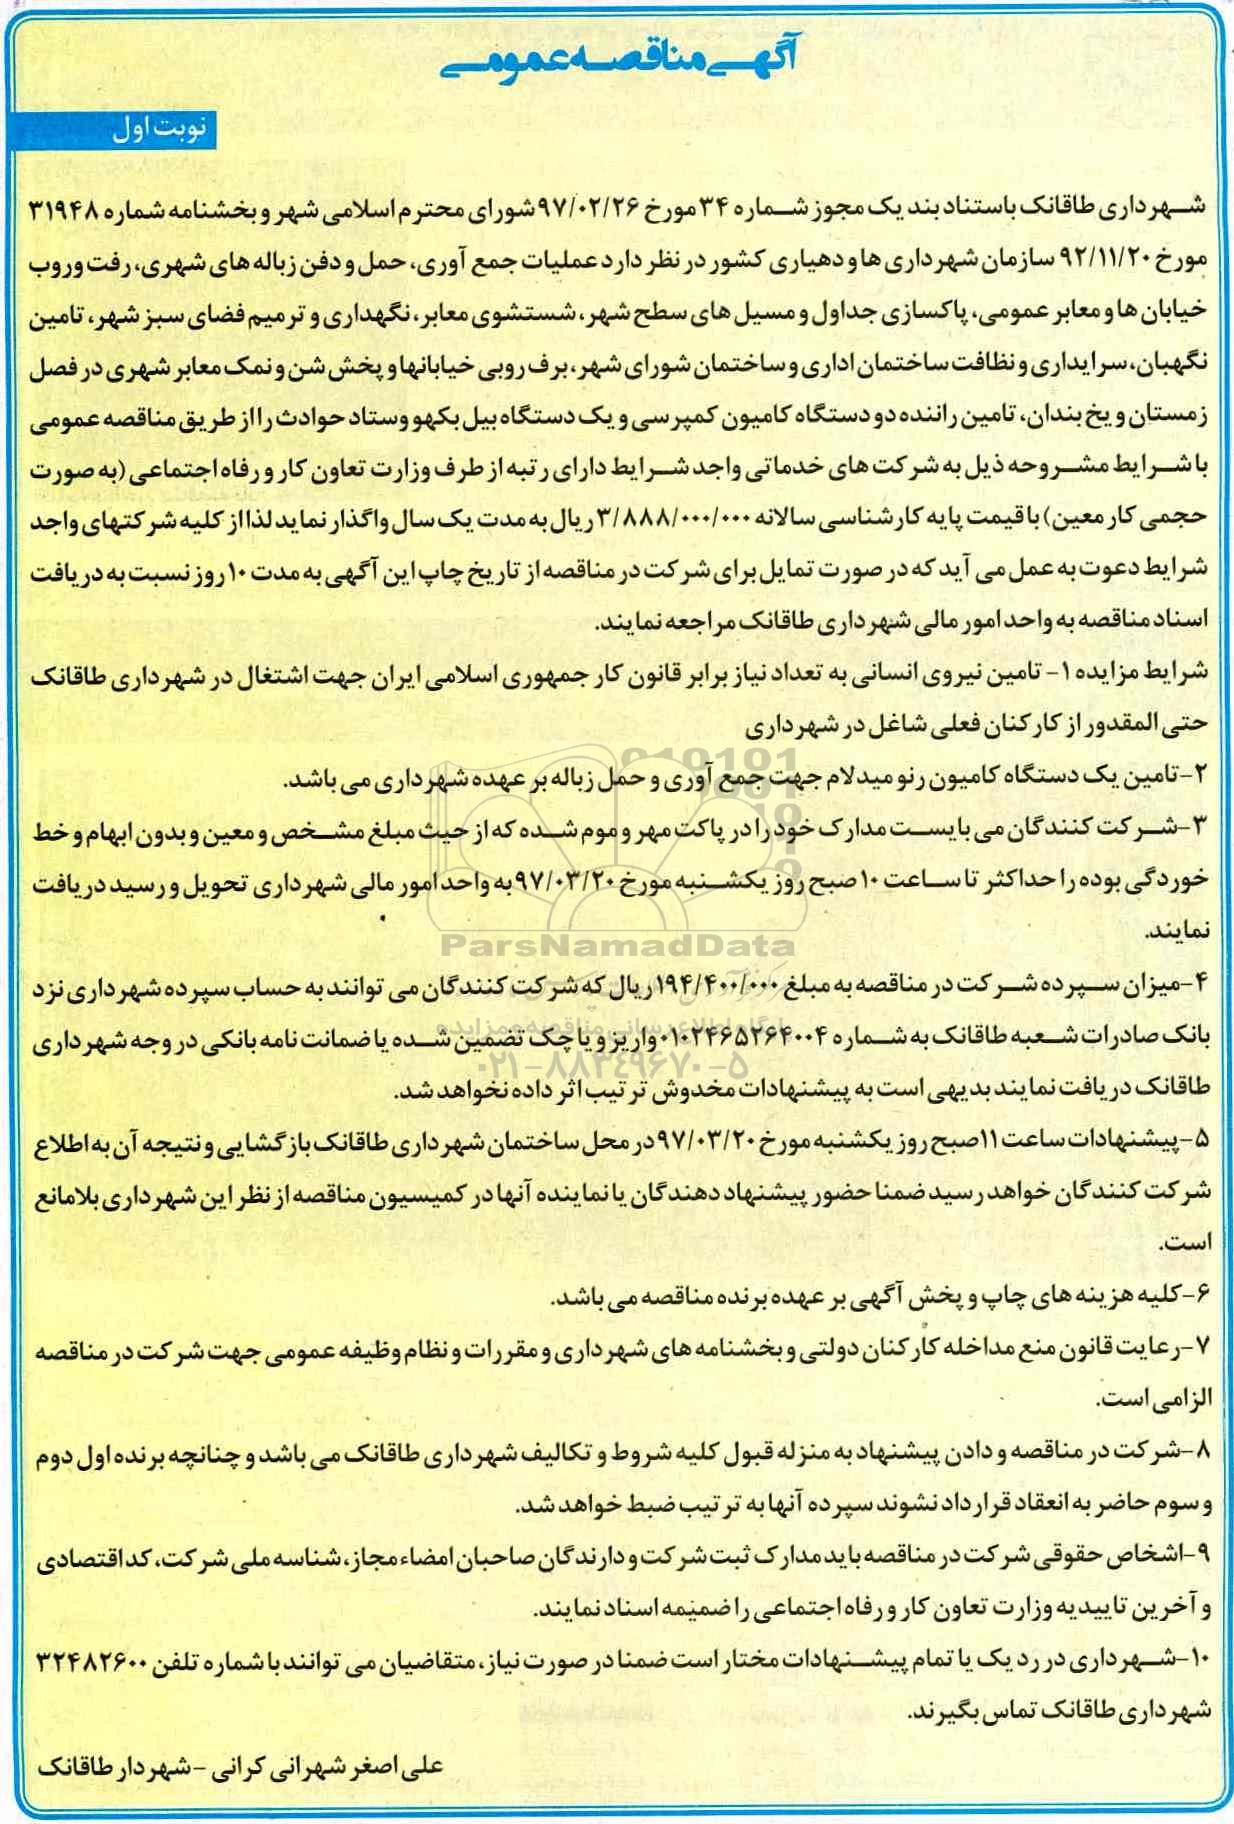 آگهی مناقصه عمومی
نوبت اول
شهرداری طاقانک باستناد بند یک مجوز شماره ۳۴ مورخ ۹۷/۰۲/۲۶ شورای محترم اسلامی شهر و بخشنامه شماره ۳۱۹۴۸
مورخ ۹۲/۱۱/۲۰ سازمان شهرداری ها و دهیاری کشور در نظر دارد عملیات جمع آوری، حمل و دفن زباله های شهری، رفت وروب
خیابان ها و معابر عمومی، پاکسازی جداول و مسیل های سطح شهر، شستشوی معابر، نگهداری و ترمیم فضای سبز شهر، تامین
نگهبان، سرایداری و نظافت ساختمان اداری و ساختمان شورای شهر، برف روبی خیابانها و پخش شن و نمک معابر شهری در فصل
زمستان و یخ بندان، تامین راننده دو دستگاه کامیون کمپرسی و یک دستگاه بیل بکهو وستاد حوادث را از طریق مناقصه عمومی
با شرایط مشروحه ذیل به شرکت های خدماتی واجد شرایط دارای رتبه از طرف وزارت تعاون کار و رفاه اجتماعی (به صورت
حجمی کار معین) با قیمت پایه کارشناسی سالانه ۳/۸۸۸/۰۰۰/۰۰۰ ریال به مدت یک سال واگذار نماید لذا از کلیه شرکتهای واجد
شرایط دعوت به عمل می آید که در صورت تمایل برای شرکت در مناقصه از تاریخ چاپ این آگهی به مدت ۱۰ روز نسبت به دریافت
اسناد مناقصه به واحد امور مالی شهرداری طاقانک مراجعه نمایند.
شرایط مزایده ۱- تامین نیروی انسانی به تعداد نیاز برابر قانون کار جمهوری اسلامی ایران جهت اشتغال در شهرداری طاقانک
حتی المقدور از کارکنان فعلی شاغل در شهرداری
۲-تامین یک دستگاه کامیون رنو میدلام جهت جمع آوری و حمل زباله بر عهده شهرداری می باشد.
۳-شرکت کنندگان می بایست مدارک خود را در پاکت مهر و موم شده که از حیث مبلغ مشخص و معین و بدون ابهام و خط
خوردگی بوده را حداکثر تا ساعت ۱۰ صبح روز یکشنبه مورخ ۹۷/۰۳/۲۰ به واحد امور مالی شهرداری تحویل و رسید دریافت
نمایند.
۴-میزان سپرده شرکت در مناقصه به مبلغ ۱۹۴/۴۰۰/۰۰۰ ریال که شرکت کنندگان می توانند به حساب سپرده شهرداری نزد
بانک صادرات شعبه طاقانک به شماره ۰۱۰۲۴۶۵۲۶۴۰۰۴ واریز و یا چک تضمین شده یا ضمانت نامه بانکی در وجه شهرداری
طاقانک دریافت نمایند بدیهی است به پیشنهادات مخدوش ترتیب اثر داده نخواهد شد.
۵-پیشنهادات ساعت ۱۱صبح روز یکشنبه مورخ ۹۷/۰۳/۲۰ در محل ساختمان شهرداری طاقانک بازگشایی و نتیجه آن به اطلاع
شرکت کنندگان خواهد رسید ضمنا حضور پیشنهاد دهندگان یا نماینده آنها در کمیسیون مناقصه از نظر این شهرداری بلامانع
است.
۶-کلیه هزینه های چاپ و پخش آگهی بر عهده برنده مناقصه می باشد.
۷-رعایت قانون منع مداخله کارکنان دولتی و بخشنامه های شهرداری و مقررات و نظام وظیفه عمومی جهت شرکت در مناقصه
الزامی است.
۸-شرکت در مناقصه و دادن پیشنهاد به منزله قبول کلیه شروط و تکالیف شهرداری طاقانک می باشد و چنانچه برنده اول دوم
و سوم حاضر به انعقاد قرارداد نشوند سپرده آنها به ترتیب ضبط خواهد شد.
۹-اشخاص حقوقی شرکت در مناقصه باید مدارک ثبت شرکت و دارندگان صاحبان امضاء مجاز، شناسه ملی شرکت، کد اقتصادی
و آخرین تاییدیه وزارت تعاون کار و رفاه اجتماعی را ضمیمه اسناد نمایند.
۱۰-شهرداری در رد یک یا تمام پیشنهادات مختار است ضمنا در صورت نیاز، متقاضیان می توانند با شماره تلفن ۳۲۴۸۲۶۰۰
شهرداری طاقانک تماس بگیرند.
علی اصغر شهرانی کرانی -شهردار طاقانک
ParsNamadData
پایگاه اطلاع رسانی مناقصه و مزایده
۰۲۱-۸۸۳۴۹۶۷۰-۵